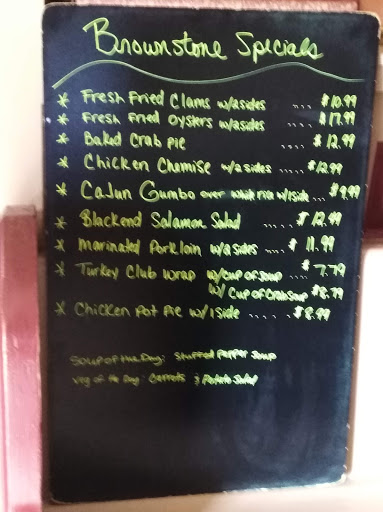 Brownstone Specials
* Fresh Fried Clams w/2 sides .... $10.99
* Fresh Fried Oysters w/2 sides .... $17.99
* Baked Crab Pie .... $12.99
* Chicken Chemise w/2 sides ..... $12.99
* Cajun Gumbo over white rice w/1 side... $9.99
* Blackend Salamon Salad ..... $12.99
* Marinated Porkloin w/2 sides .... $11.99
* Turkey Club Wrap w/cup of soup .... $7.79
w/ cup of Crab soup $8.79
* Chicken Pot Pie w/1 side ..... $8.99
Soup of the Day: Stuffed Pepper Soup
Veg of the Day: Carrots & Potato Salad